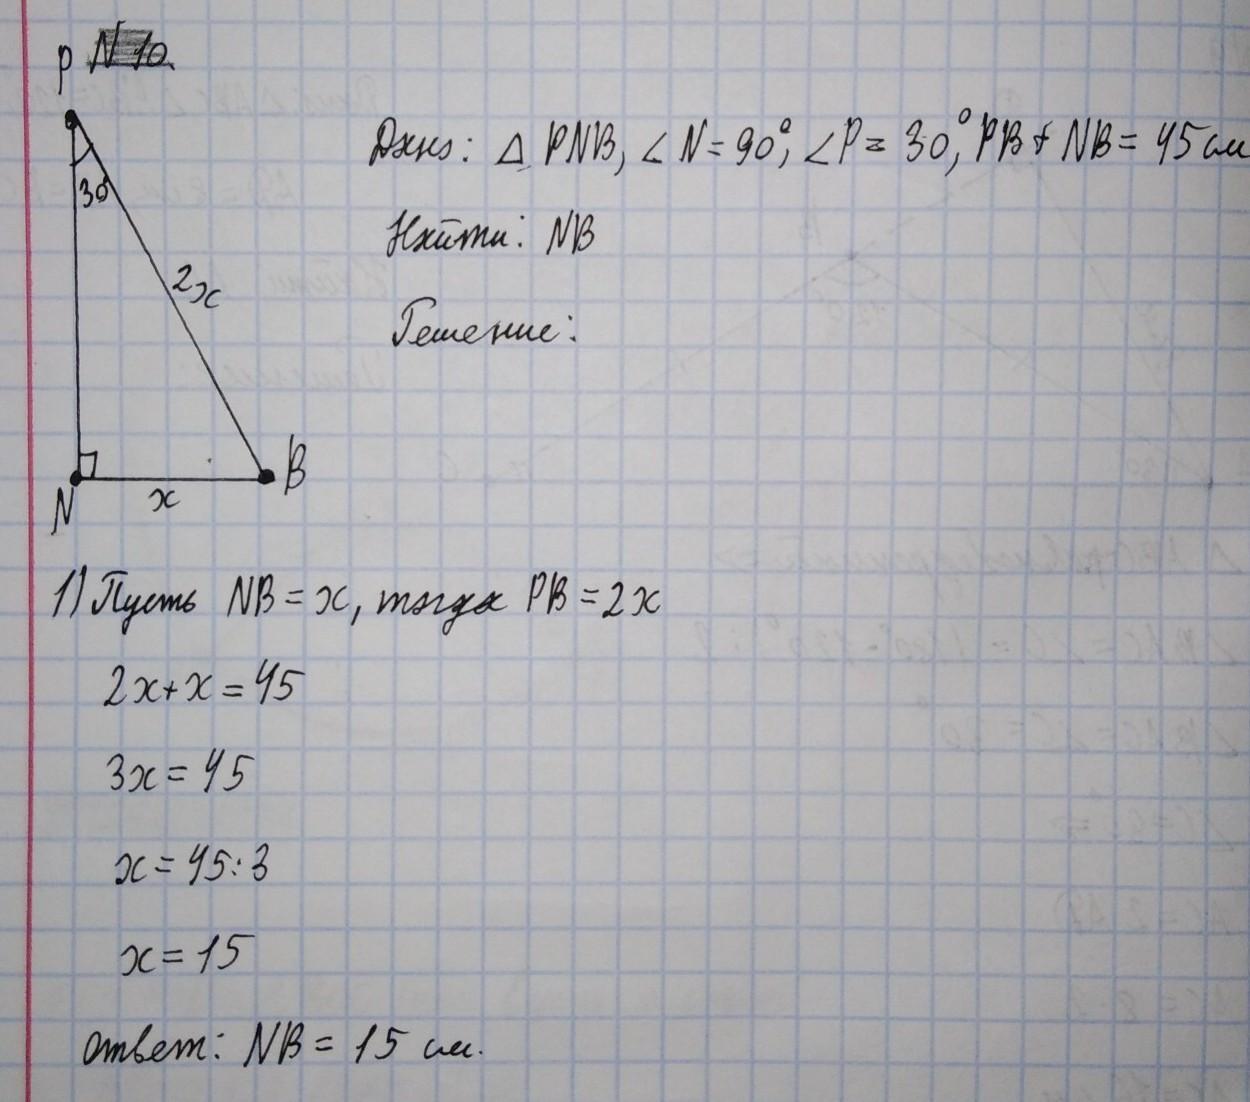 N 10.
P
Дано: △ PNB, ∠N = 90°, ∠P = 30°, PB + NB = 45 см
30°
Найти: NB
2x
Решение:
B
N
x
1) Пусть NB = x, тогда PB = 2x
2x + x = 45
3x = 45
x = 45 : 3
x = 15
ответ: NB = 15 см.